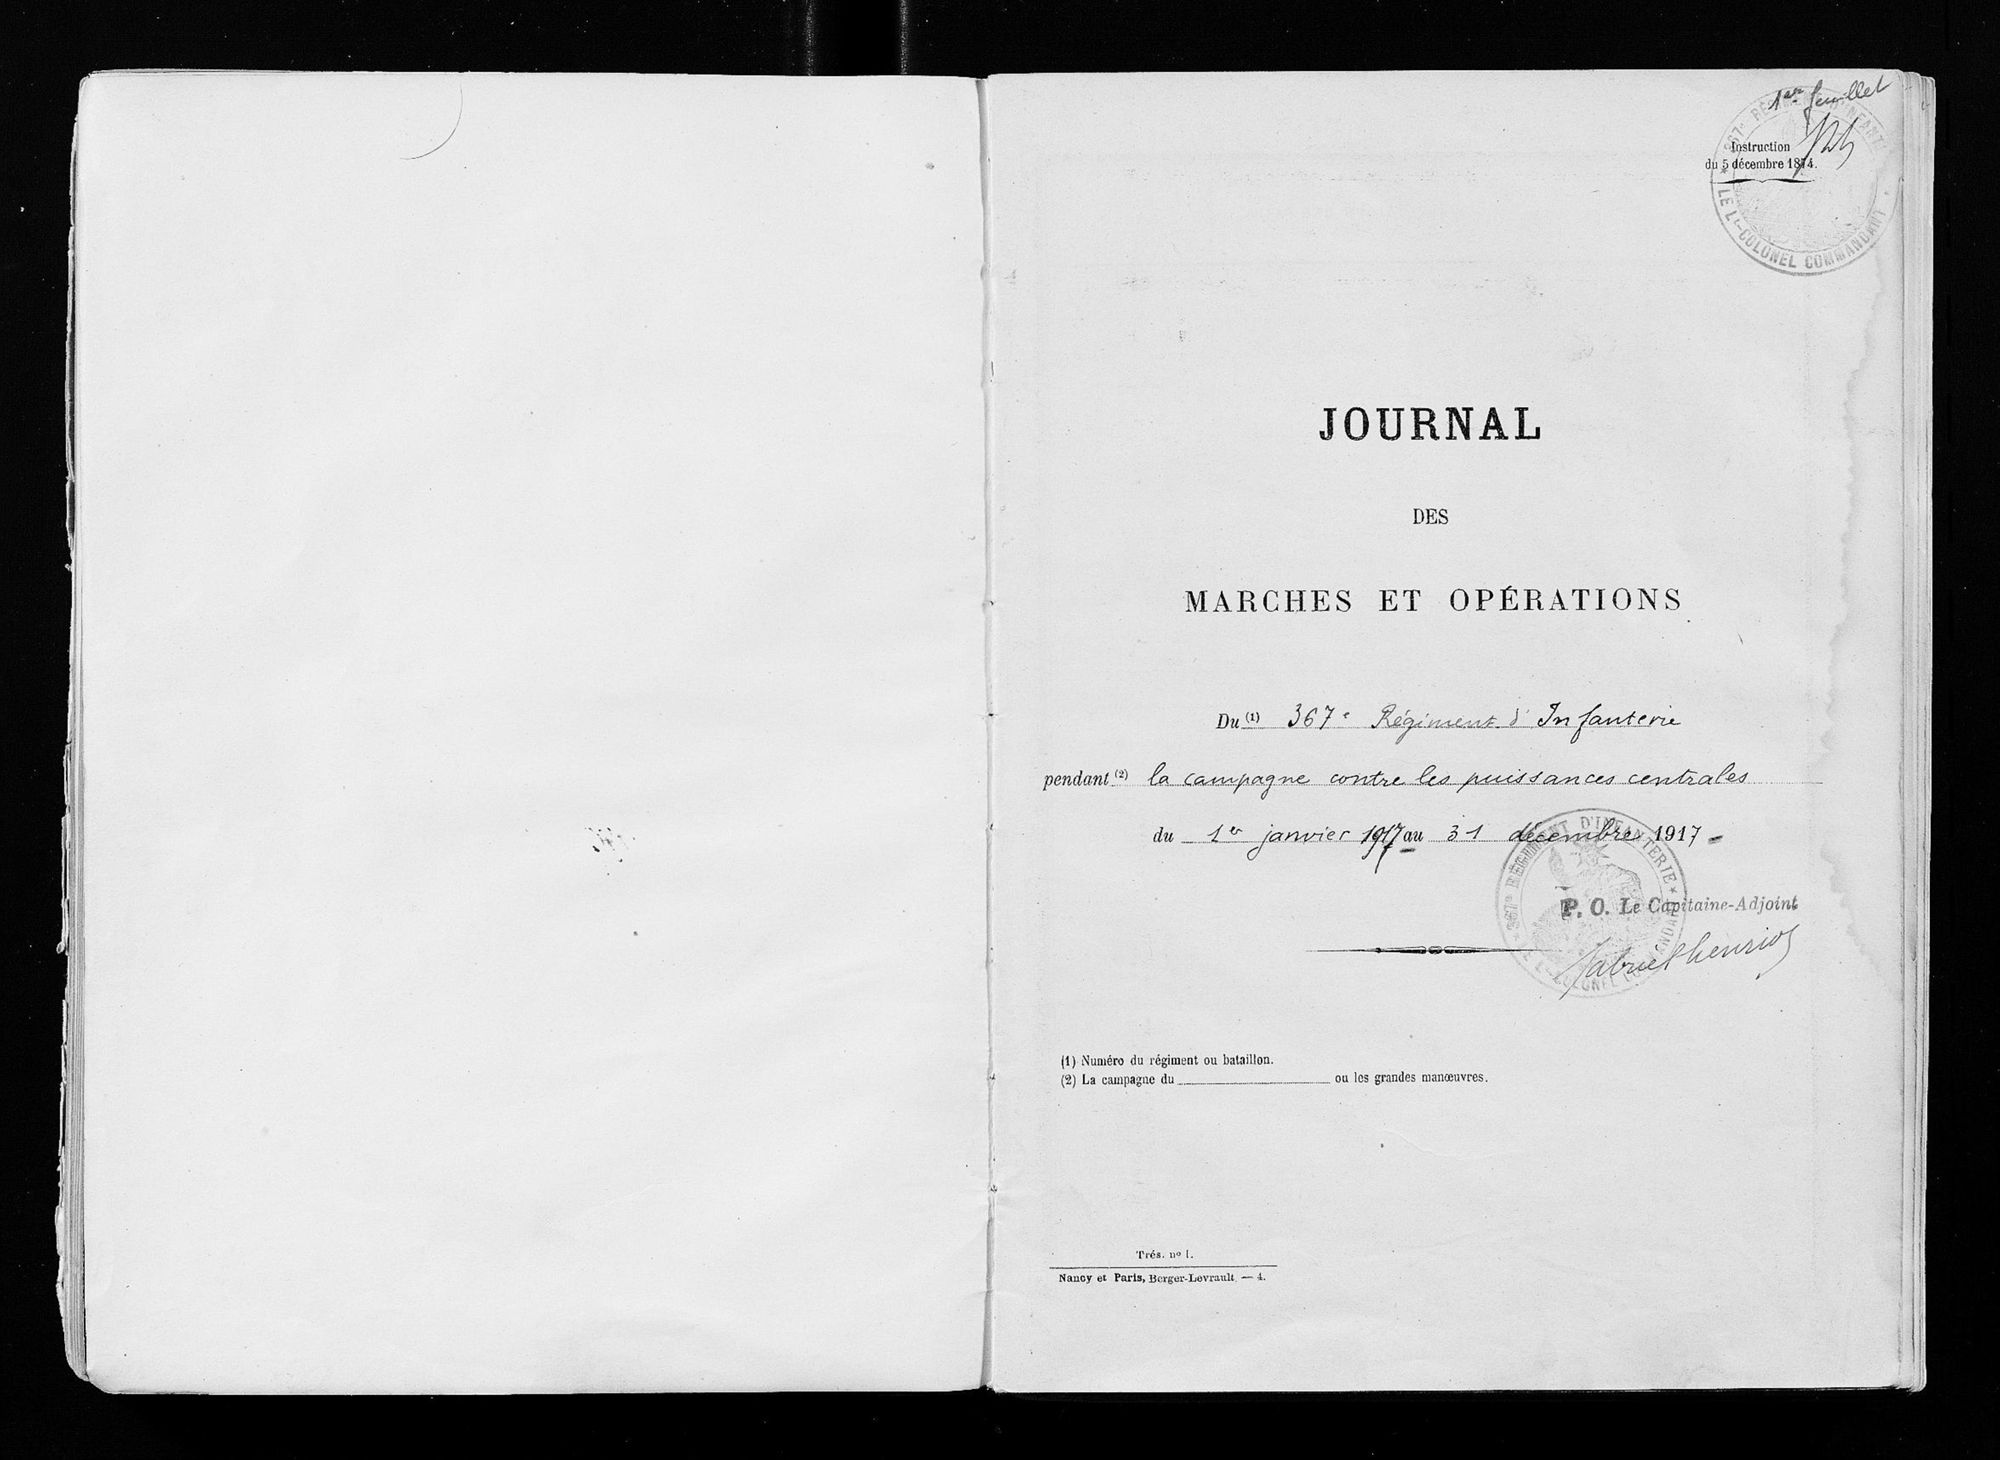 1er feuillet
Instruction
du 5 décembre 1874.
367e RÉGIMENT D'INFANTERIE
LE Lt-COLONEL COMMANDANT
JOURNAL
DES
MARCHES ET OPÉRATIONS
Du (1) 367e Régiment d'Infanterie
pendant (2) la campagne contre les puissances centrales
du 1er janvier 1917 au 31 décembre 1917
367e RÉGIMENT D'INFANTERIE
LE Lt-COLONEL COMMANDANT
P. O. Le Capitaine-Adjoint
(1) Numéro du régiment ou bataillon.
(2) La campagne du ou les grandes manœuvres.
Trés. no 1.
Nancy et Paris, Berger-Levrault. — 4.